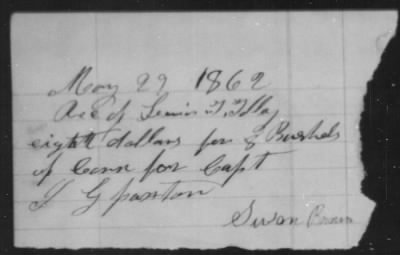 May 22 1862
Rec of Lewis T, 
eight dollars for 8 Bushels
of Corn for Capt
J G paxton
Swan Brown